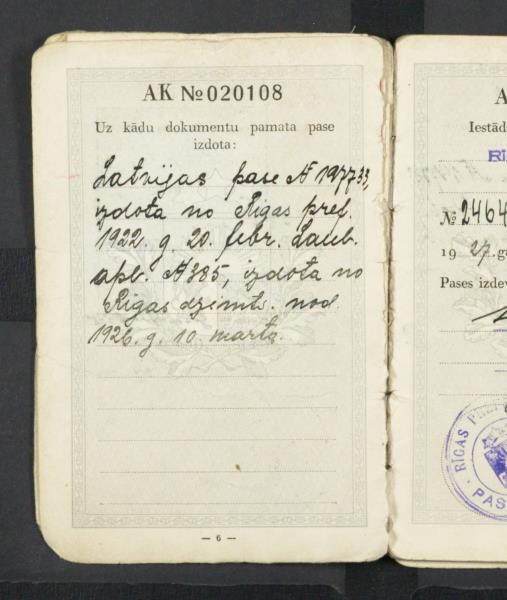 AK № 020108
Uz kādu dokumentu pamata pase
izdota:
Latvijas pase № 197733,
izdota no Rīgas pref.
1922. g. 20. febr. Laul.
apl. № 385, izdota no
Rīgas dzimts. nod.
1926. g. 10. martā.
— 6 —
A
Iestād
№ 2464
19 27. g
Pases izdev
RĪGAS PRE
PAS